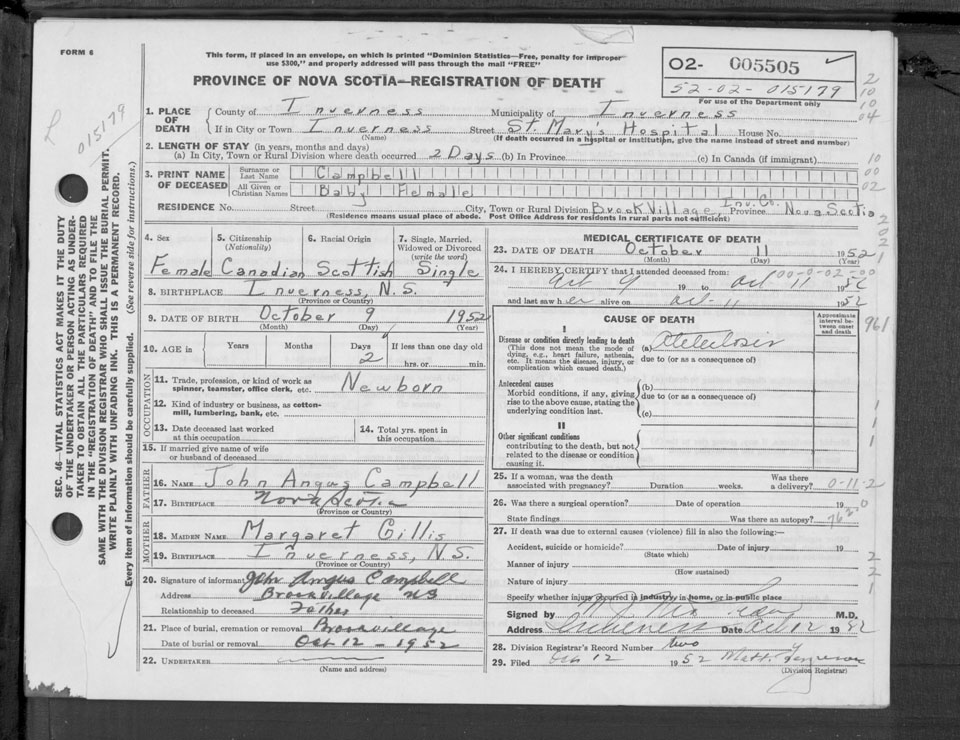 FORM 6
This form, if placed in an envelope, on which is printed "Dominion Statistics—Free, penalty for improper
use $300," and properly addressed will pass through the mail "FREE"
PROVINCE OF NOVA SCOTIA—REGISTRATION OF DEATH
O2- 005505
52-02-015179
For use of the Department only
015179
SEC. 46 VITAL STATISTICS ACT MAKES IT THE DUTY
OF THE UNDERTAKER OR PERSON ACTING AS UNDER-
TAKER TO OBTAIN ALL THE PARTICULARS REQUIRED
IN THE "REGISTRATION OF DEATH" AND TO FILE THE
SAME WITH THE DIVISION REGISTRAR WHO SHALL ISSUE THE BURIAL PERMIT.
WRITE PLAINLY WITH UNFADING INK. THIS IS A PERMANENT RECORD.
Every item of information should be carefully supplied. (See reverse side for instructions.)
1. PLACE OF DEATH County of Inverness Municipality of Inverness
If in City or Town Inverness Street St. Mary's Hospital House No.
(Name) (If death occurred in a hospital or institution, give the name instead of street and number)
2. LENGTH OF STAY (in years, months and days)
(a) In City, Town or Rural Division where death occurred 2 Days (b) In Province (c) In Canada (if immigrant)
3. PRINT NAME OF DECEASED Surname or Last Name Campbell
All Given or Christian Names Baby Female
RESIDENCE No. Street City, Town or Rural Division Brook Village, Inv. Co. Province Nova Scotia
(Residence means usual place of abode. Post Office Address for residents in rural parts not sufficient)
4. Sex 5. Citizenship (Nationality) 6. Racial Origin 7. Single, Married, Widowed or Divorced (write the word)
Female Canadian Scottish Single
8. BIRTHPLACE Inverness, N.S.
(Province or Country)
9. DATE OF BIRTH October 9 1952
(Month) (Day) (Year)
10. AGE in Years Months Days If less than one day old
2 hrs. or min.
OCCUPATION
11. Trade, profession, or kind of work as spinner, teamster, office clerk, etc. Newborn
12. Kind of industry or business, as cotton-mill, lumbering, bank, etc.
13. Date deceased last worked at this occupation
14. Total yrs. spent in this occupation
15. If married give name of wife or husband of deceased
FATHER
16. Name John Angus Campbell
17. Birthplace Nova Scotia
(Province or Country)
MOTHER
18. Maiden Name Margaret Gillis
19. Birthplace Inverness, N.S.
(Province or Country)
20. Signature of informant John Angus Campbell
Address Brookvillage NS
Relationship to deceased Father
21. Place of burial, cremation or removal Brookvillage
Date of burial or removal Oct 12 - 1952
22. Undertaker
(Name and address)
MEDICAL CERTIFICATE OF DEATH
23. DATE OF DEATH October 11 1952
(Month) (Day) (Year)
24. I HEREBY CERTIFY that I attended deceased from:
Oct 9 19 to Oct 11 1952
00-0-02-00
and last saw her alive on Oct 11 1952
CAUSE OF DEATH
Approximate interval between onset and death
I
Disease or condition directly leading to death
(This does not mean the mode of dying, e.g., heart failure, asthenia, etc. It means the disease, injury, or complication which caused death.)
(a)
due to (or as a consequence of)
Antecedent causes
Morbid conditions, if any, giving rise to the above cause, stating the underlying condition last.
(b)
due to (or as a consequence of)
(c)
II
Other significant conditions
contributing to the death, but not related to the disease or condition causing it.
25. If a woman, was the death associated with pregnancy? Duration weeks. Was there a delivery? 0-11-2
26. Was there a surgical operation? Date of operation 19
State findings Was there an autopsy?
27. If death was due to external causes (violence) fill in also the following:—
Accident, suicide or homicide? Date of injury 19
(State which)
Manner of injury
(How sustained)
Nature of injury
Specify whether injury occurred in industry, in home, or in public place
Signed by M.D.
Address Inverness Date Oct 12 1952
28. Division Registrar's Record Number two
29. Filed Oct 12 1952 Matt. Ferguson
(Division Registrar)
2
10
10
04
10
00
02
2
02
1
961
1
1
1
2
2
1